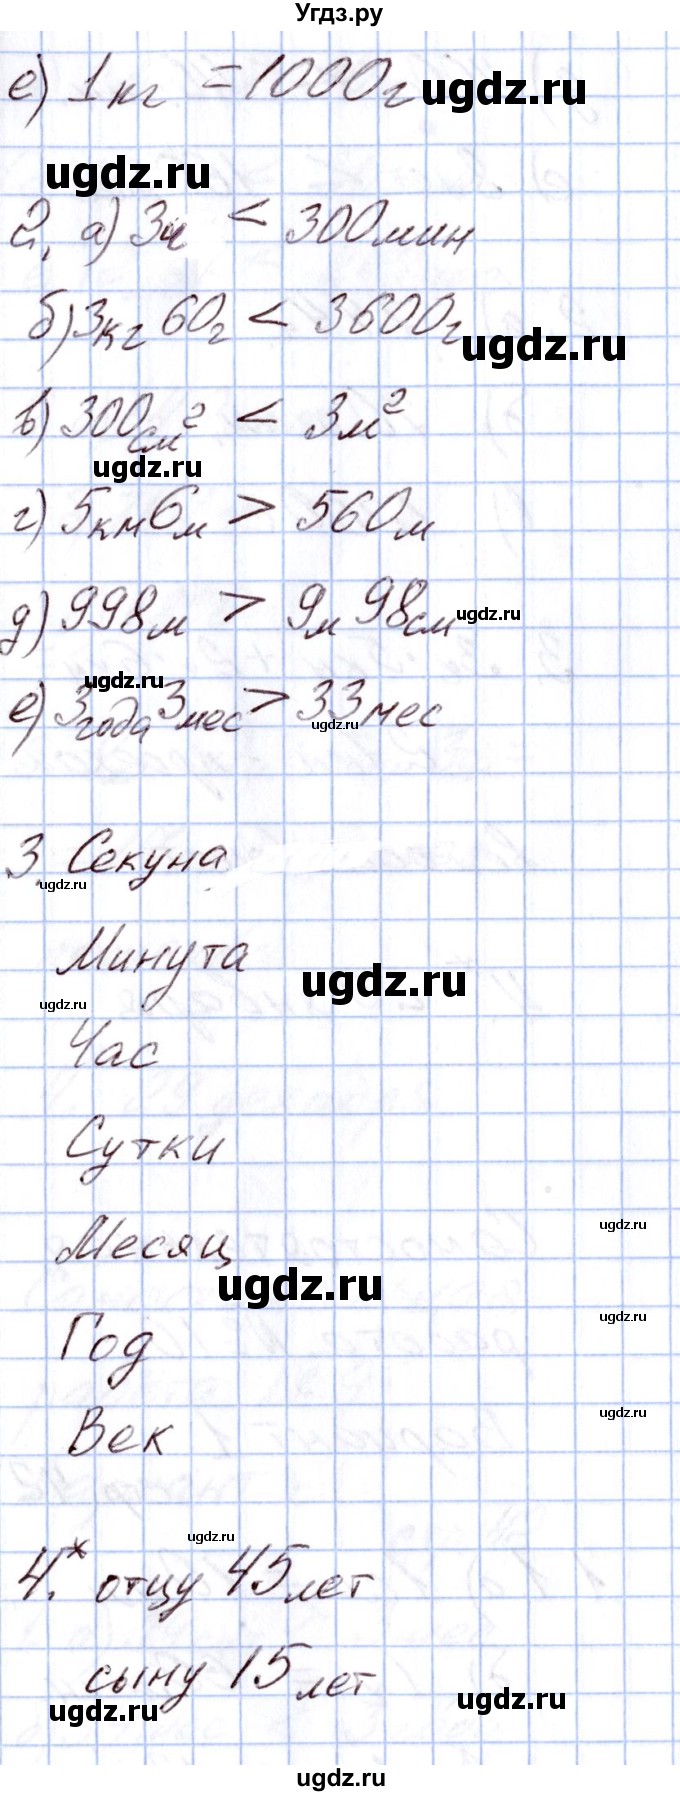 Угдз.ру
е) 1кг = 1000г ugdz.ru
ugdz.ru
2. а) 3ч < 300мин
б) 3кг 60г < 3600г
ugdz.ru
в) 300см² < 3м²
ugdz.ru
г) 5км 6м > 560м
д) 998м > 9м 98см
ugdz.ru
ugdz.ru
е) 3года 3мес > 33мес
ugdz.ru
3 Секуна
ugdz.ru
Минута
ugdz.ru
ugdz.ru
Час
Сутки
ugdz.ru
Месяц
ugdz.ru
ugdz.ru
Год
ugdz.ru
Век
ugdz.ru
4.* отцу 45лет
сыну 15лет
ugdz.ru
ugdz.ru
ugdz.ru